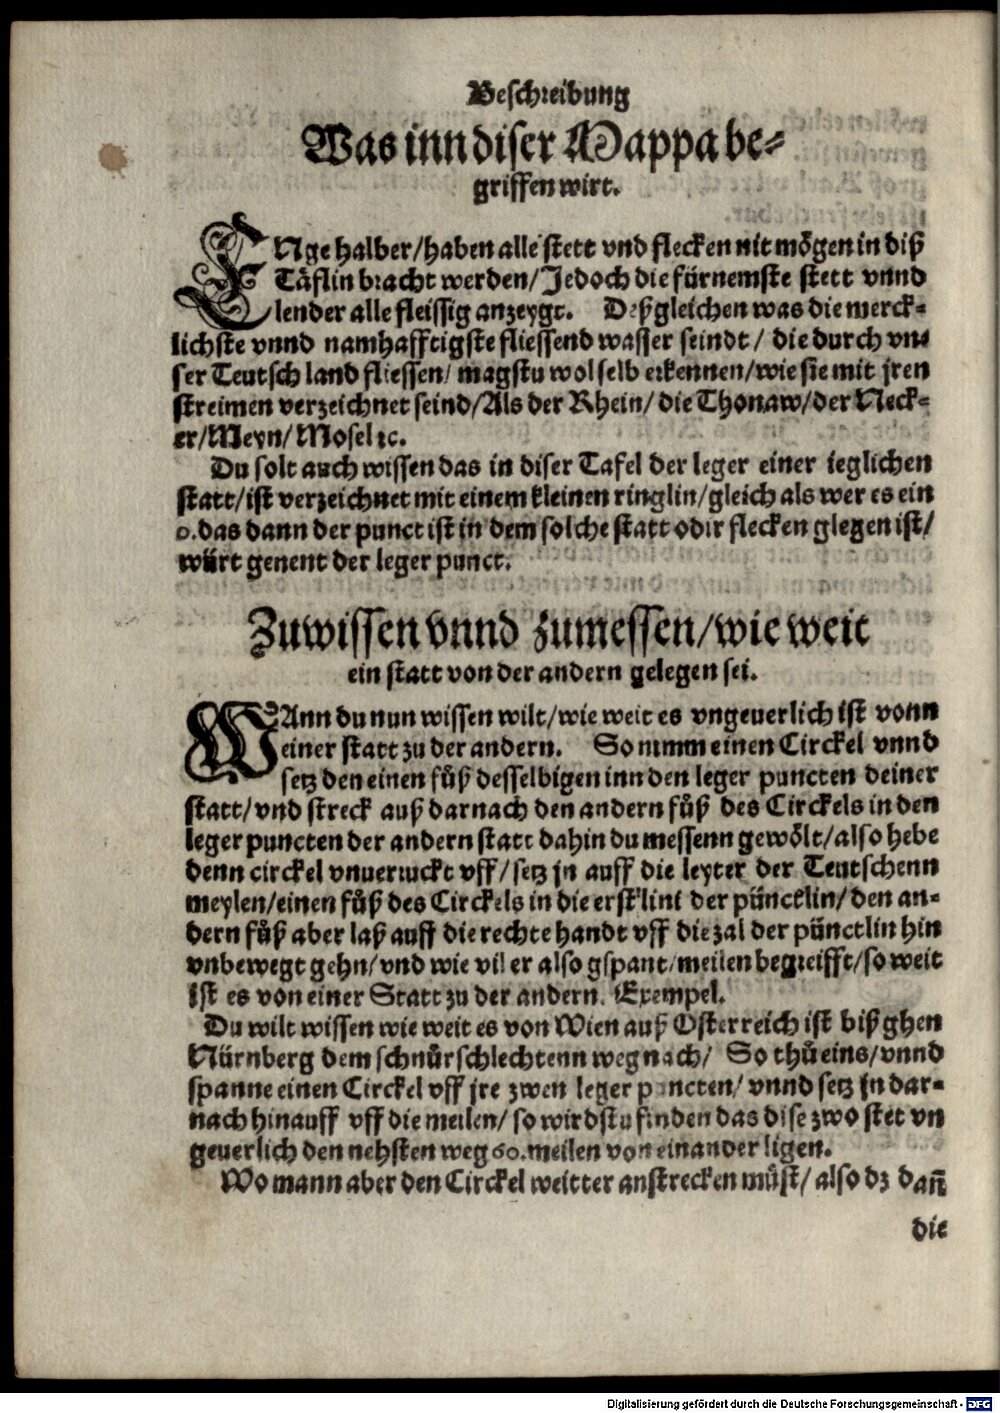 Beschreibung
Was inn diser Mappa be⸗
griffen wirt.
ENge halber/haben alle stett vnd flecken nit mögen in diß
Täflin bracht werden/Jedoch die fürnemste stett vnnd
lender alle fleissig anzeygt. Deßgleichen was die merck⸗
lichste vnnd namhafftigste fliessend wasser seindt/ die durch vn⸗
ser Teutsch land fliessen/ magstu wol selb erkennen/wie sie mit jren
streimen verzeichnet seind/Als der Rhein/ die Thonaw/der Neck⸗
er/Meyn/Mosel ꝛc.
Du solt auch wissen das in diser Tafel der leger einer ieglichen
statt/ist verzeichnet mit einem kleinen ringlin/gleich als wer es ein
o.das dann der punct ist in dem solche statt odir flecken glegen ist/
würt genent der leger punct.
Zuwissen vnnd zumessen/wie weit
ein statt von der andern gelegen sei.
WAnn du nun wissen wilt/wie weit es vngeuerlich ist vonn
einer statt zu der andern. So nimm einen Circkel vnnd
setz den einen fůß desselbigen inn den leger puncten deiner
statt/vnd streck auß darnach den andern fůß des Circkels in den
leger puncten der andern statt dahin du messenn gewölt/also hebe
denn circkel vnuerruckt vff/setz jn auff die leyter der Teutschenn
meylen/einen fůß des Circkels in die erst lini der pünctlin/den an⸗
dern fůß aber laß auff die rechte handt vff die zal der pünctlin hin
vnbewegt gehn/vnd wie vil er also gspant/meilen begreifft/so weit
ist es von einer Statt zu der andern. Exempel.
Du wilt wissen wie weit es von Wien auß Osterreich ist biß ghen
Nürnberg dem schnůrschlechtenn weg nach/ So thů eins/vnnd
spanne einen Circkel vff jre zwen leger puncten/ vnnd setz jn dar⸗
nach hinauff vff die meilen/ so wirdstu finden das dise zwo stet vn
geuerlich den nehsten weg 60.meilen von einander ligen.
Wo mann aber den Circkel weitter anstrecken můst/ also dz dañ
die
Digitalisierung gefördert durch die Deutsche Forschungsgemeinschaft - DFG